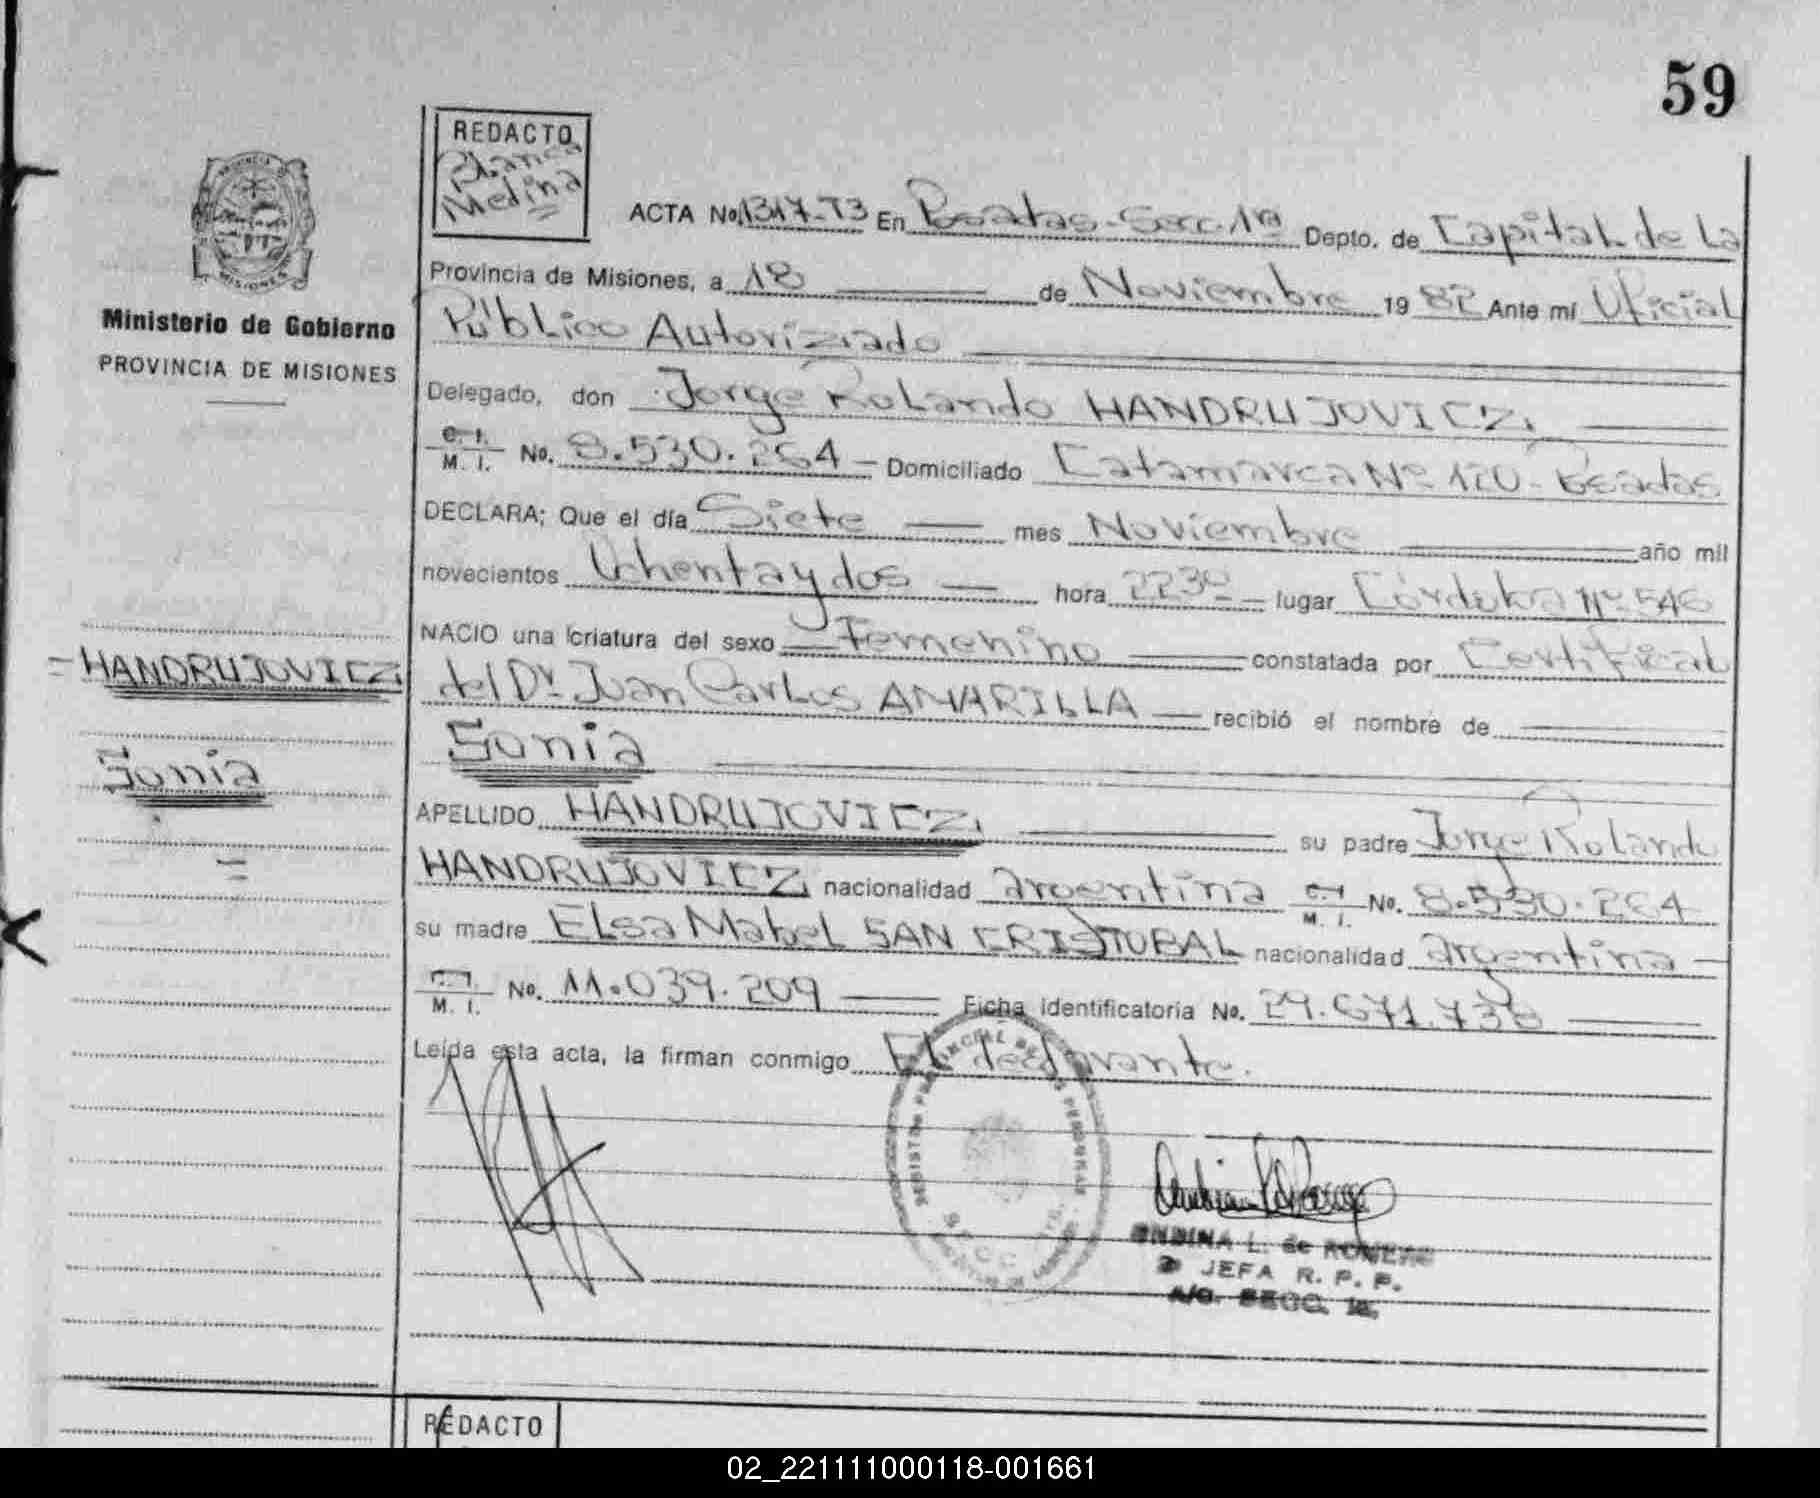 59
REDACTO
Blanca
Medina
PROVINCIA DE
MISIONES
Ministerio de Gobierno
PROVINCIA DE MISIONES
ACTA No. 1317-T3 En Posadas-Secc.1ª Depto. de Capital de La
Provincia de Misiones, a 18 de Noviembre 1982 Ante mí Oficial
Público Autorizado
Delegado, don Jorge Rolando HANDRUJOVICZ,
C. I.
M. I. No. 8.530.264 Domiciliado Catamarca Nº 120 - Posadas
DECLARA; Que el día Siete mes Noviembre año mil
novecientos Ochenta y dos hora 22³⁰ lugar Córdoba Nº 546
NACIO una criatura del sexo Femenino constatada por Certificad
del Dr. Juan Carlos AMARILLA recibió el nombre de
Sonia
APELLIDO HANDRUJOVICZ, su padre Jorge Rolando
HANDRUJOVICZ, nacionalidad argentina C. I.
M. I. No. 8.530.264
su madre Elsa Mabel SAN CRISTOBAL nacionalidad argentina
C. I.
M. I. No. 11.039.209 Ficha identificatoria No. 29.671.738
Leída esta acta, la firman conmigo El declarante.
= HANDRUJOVICZ,
Sonia
=
REGISTRO PROVINCIAL DE LAS PERSONAS
SECC.
L. de
JEFA R. P. P.
A/C. SECC. 1a.
REDACTO
02_221111000118-001661